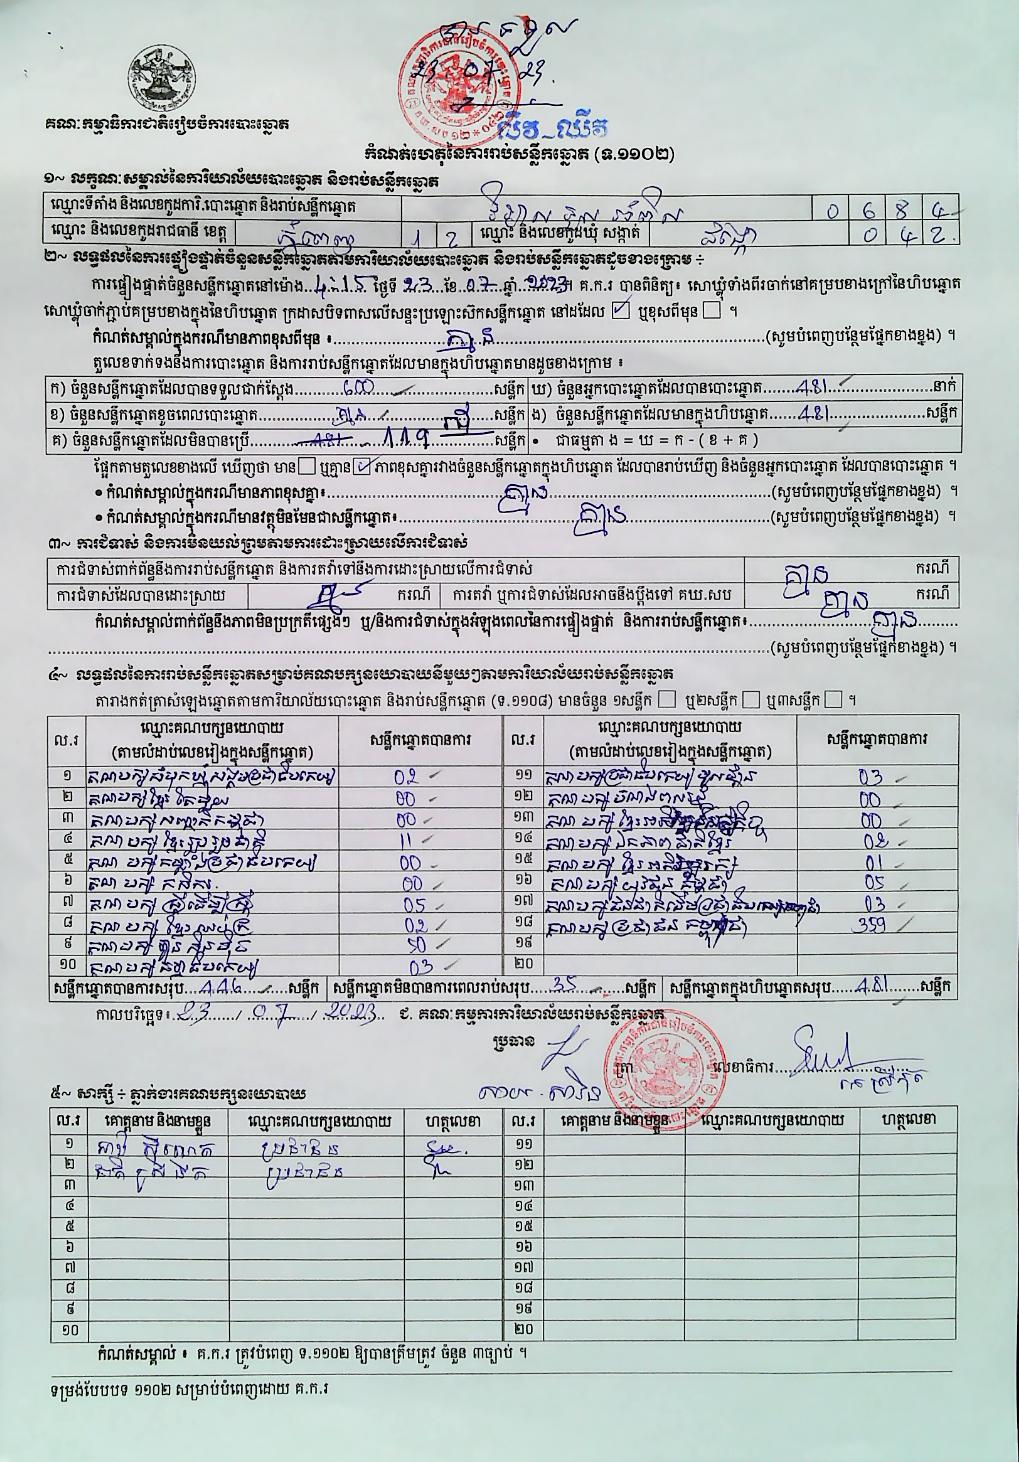 បាន ទទួល
23. 07. 23.
លីវ_ឈីត
គណៈកម្មាធិការជាតិរៀបចំការបោះឆ្នោត
កំណត់ហេតុនៃការរាប់សន្លឹកឆ្នោត (ទ.១១០២)
១~ លក្ខណៈសម្គាល់នៃការិយាល័យបោះឆ្នោត និងរាប់សន្លឹកឆ្នោត
ឈ្មោះទីតាំង និងលេខកូដការិ.បោះឆ្នោត និងរាប់សន្លឹកឆ្នោត 0 6 8 4
ឈ្មោះ និងលេខកូដរាជធានី ខេត្ត ភ្នំពេញ 1 2 ឈ្មោះ និងលេខកូដឃុំ សង្កាត់ ដង្កោ 0 4 2
២~ លទ្ធផលនៃការផ្ទៀងផ្ទាត់ចំនួនសន្លឹកឆ្នោតតាមការិយាល័យបោះឆ្នោត និងរាប់សន្លឹកឆ្នោតដូចខាងក្រោម ÷
ការផ្ទៀងផ្ទាត់ចំនួនសន្លឹកឆ្នោតនៅម៉ោង 4:15 ថ្ងៃទី 23 ខែ 07 ឆ្នាំ 2023។ គ.ក.រ បានពិនិត្យ៖ សោឃ្លុំទាំងពីរចាក់នៅគម្របខាងក្រៅនៃហិបឆ្នោត
សោឃ្លុំចាក់ភ្ជាប់គម្របខាងក្នុងនៃហិបឆ្នោត ក្រដាសបិទពាសលើសន្ទះប្រឡោះស៊កសន្លឹកឆ្នោត នៅដដែល ✓ ឬខុសពីមុន ។
កំណត់សម្គាល់ក្នុងករណីមានភាពខុសពីមុន ៖ គ្មាន (សូមបំពេញបន្ថែមផ្នែកខាងខ្នង) ។
តួលេខទាក់ទងនឹងការបោះឆ្នោត និងការរាប់សន្លឹកឆ្នោតដែលមានក្នុងហិបឆ្នោតមានដូចខាងក្រោម ៖
ក) ចំនួនសន្លឹកឆ្នោតដែលបានទទួលជាក់ស្តែង 600 សន្លឹក ឃ) ចំនួនអ្នកបោះឆ្នោតដែលបានបោះឆ្នោត 481 នាក់
ខ) ចំនួនសន្លឹកឆ្នោតខូចពេលបោះឆ្នោត គ្មាន សន្លឹក ង) ចំនួនសន្លឹកឆ្នោតដែលមានក្នុងហិបឆ្នោត 481 សន្លឹក
គ) ចំនួនសន្លឹកឆ្នោតដែលមិនបានប្រើ 481 119 សន្លឹក • ជាធម្មតា ង = ឃ = ក - ( ខ + គ )
ផ្អែកតាមតួលេខខាងលើ ឃើញថា មាន ឬគ្មាន ✓ ភាពខុសគ្នារវាងចំនួនសន្លឹកឆ្នោតក្នុងហិបឆ្នោត ដែលបានរាប់ឃើញ និងចំនួនអ្នកបោះឆ្នោត ដែលបានបោះឆ្នោត ។
• កំណត់សម្គាល់ក្នុងករណីមានភាពខុសគ្នា៖ គ្មាន (សូមបំពេញបន្ថែមផ្នែកខាងខ្នង) ។
• កំណត់សម្គាល់ក្នុងករណីមានវត្ថុមិនមែនជាសន្លឹកឆ្នោត៖ គ្មាន (សូមបំពេញបន្ថែមផ្នែកខាងខ្នង) ។
៣~ ការជំទាស់ និងការមិនយល់ព្រមតាមការដោះស្រាយលើការជំទាស់
ការជំទាស់ពាក់ព័ន្ធនឹងការរាប់សន្លឹកឆ្នោត និងការតវ៉ាទៅនឹងការដោះស្រាយលើការជំទាស់ គ្មាន ករណី
ការជំទាស់ដែលបានដោះស្រាយ គ្មាន ករណី ការតវ៉ា ឬការជំទាស់ដែលអាចនឹងប្តឹងទៅ គឃ.សប គ្មាន ករណី
កំណត់សម្គាល់ពាក់ព័ន្ធនឹងភាពមិនប្រក្រតីផ្សេងៗ ឬ/និងការជំទាស់ក្នុងអំឡុងពេលនៃការផ្ទៀងផ្ទាត់ និងការរាប់សន្លឹកឆ្នោត៖ គ្មាន
(សូមបំពេញបន្ថែមផ្នែកខាងខ្នង) ។
៤~ លទ្ធផលនៃការរាប់សន្លឹកឆ្នោតសម្រាប់គណបក្សនយោបាយនីមួយៗតាមការិយាល័យរាប់សន្លឹកឆ្នោត
តារាងកត់ត្រាសំឡេងឆ្នោតតាមការិយាល័យបោះឆ្នោត និងរាប់សន្លឹកឆ្នោត (ទ.១១០៨) មានចំនួន ១សន្លឹក ឬ២សន្លឹក ឬ៣សន្លឹក ។
ល.រ ឈ្មោះគណបក្សនយោបាយ (តាមលំដាប់លេខរៀងក្នុងសន្លឹកឆ្នោត) សន្លឹកឆ្នោតបានការ ល.រ ឈ្មោះគណបក្សនយោបាយ (តាមលំដាប់លេខរៀងក្នុងសន្លឹកឆ្នោត) សន្លឹកឆ្នោតបានការ
១ គណបក្សសំបុកឃ្មុំសង្គមប្រជាធិបតេយ្យ 02 ១១ គណបក្សប្រជាធិបតេយ្យមូលដ្ឋាន 03
២ គណបក្សខ្មែរតែមួយ 00 ១២ 00
៣ គណបក្សសញ្ជាតិកម្ពុជា 00 ១៣ 00
៤ គណបក្សខ្មែររួបរួមជាតិ 11 ១៤ គណបក្សឯកភាពជាតិខ្មែរ 02
៥ គណបក្សកម្លាំងប្រជាធិបតេយ្យ 00 ១៥ គណបក្សខ្មែរអភិវឌ្ឍន៍សេដ្ឋកិច្ច 01
៦ គណបក្សកសិករ 00 ១៦ គណបក្សយុវជនកម្ពុជា 05
៧ គណបក្សស្ត្រីដើម្បីស្ត្រី 05 ១៧ 03
៨ 02 ១៨ គណបក្សប្រជាជនកម្ពុជា 359
៩ គណបក្សហ្វ៊ុនស៊ិនប៉ិច 50 ១៩
១០ គណបក្សធម្មាធិបតេយ្យ 03 ២០
សន្លឹកឆ្នោតបានការសរុប 446 សន្លឹក សន្លឹកឆ្នោតមិនបានការពេលរាប់សរុប 35 សន្លឹក សន្លឹកឆ្នោតក្នុងហិបឆ្នោតសរុប 481 សន្លឹក
កាលបរិច្ឆេទ៖ 23 / 07 / 2023 ជ. គណៈកម្មការការិយាល័យរាប់សន្លឹកឆ្នោត
ប្រធាន ត្រា លេខាធិការ
៥~ សាក្សី ÷ ភ្នាក់ងារគណបក្សនយោបាយ
ល.រ គោត្តនាម និងនាមខ្លួន ឈ្មោះគណបក្សនយោបាយ ហត្ថលេខា ល.រ គោត្តនាម និងនាមខ្លួន ឈ្មោះគណបក្សនយោបាយ ហត្ថលេខា
១ ប្រជាជន ១១
២ ប្រជាជន ១២
៣ ១៣
៤ ១៤
៥ ១៥
៦ ១៦
៧ ១៧
៨ ១៨
៩ ១៩
១០ ២០
កំណត់សម្គាល់ ៖ គ.ក.រ ត្រូវបំពេញ ទ.១១០២ ឱ្យបានត្រឹមត្រូវ ចំនួន ៣ច្បាប់ ។
ទម្រង់បែបបទ ១១០២ សម្រាប់បំពេញដោយ គ.ក.រ